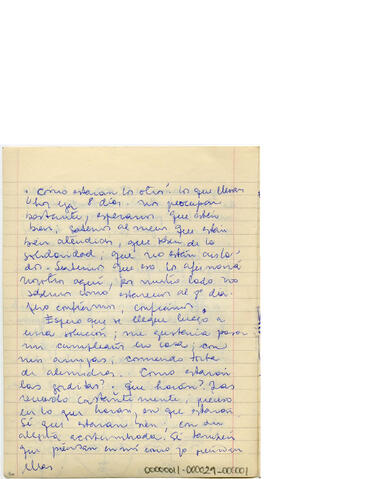 Como estarán los otros. Los que llevan
hoy 8 días. Nos preocupan
bastante, esperamos que estén
bien, sabemos al menos que están
bien atendidos, que hay de la
solidaridad; que no están aisla-
dos. Sentimos que eso lo
nosotros aquí, por mucho todo no
sabemos como estaremos al 8º día.
Pero confiamos, confiamos.
Espero que se llegue luego a
una solución; me gustaría pasar
mi cumpleaños en casa; con
mis amigas; comiendo torta
de almendras. Como estarán
las gorditas? que harán? Las
recuerdo constantemente; pienso
en lo que harán, en que estarán.
Sé que estarán bien; con su
alegría acostumbrada. Sé también
que piensan en mí como yo pienso en
ellas.
00000011-000029-000001